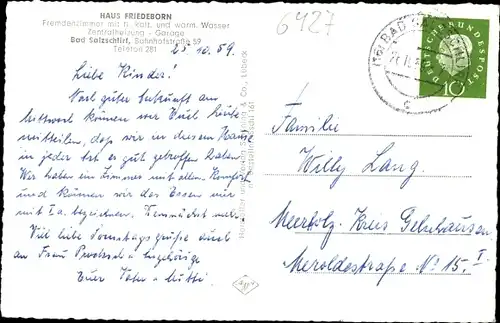 HAUS FRIEDEBORN
Fremdenzimmer mit fl. kalt. und warm. Wasser
Zentralheizung - Garage
Bad Salzschlirf, Bahnhofstraße 59
Telefon 281
25.10.59.
6427
Liebe Kinder!
Nach guter Ankunft am
Mittwoch können wir Euch heute
mitteilen, daß wir in diesem Hause
in jeder Art es gut getroffen haben.
Wir haben ein Zimmer mit allem Komfort
und können wir das Essen hier
mit I a. bezeichnen. Demnächst mehr.
Viel liebe Sonntags grüße auch
an Frau und Angehörige
Euer Vater u. Mutti.
DEUTSCHE BUNDESPOST
10
Familie
Willy Lang.
Meerholz. Kreis Gelnhausen
Meroldestraße No 15. I.